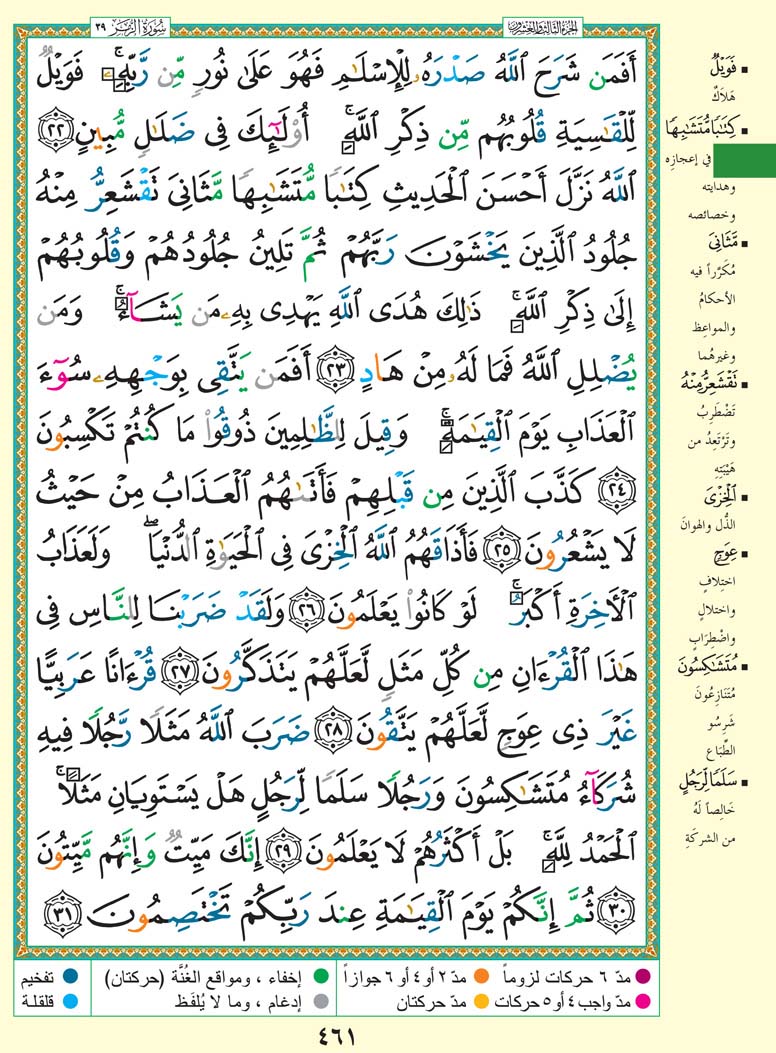 سُورَةُ الزُّمَرِ ٣٩
الجُزْءُ الثَّالِثُ وَالعِشْرُونَ
أَفَمَن شَرَحَ ٱللَّهُ صَدْرَهُۥ لِلْإِسْلَٰمِ فَهُوَ عَلَىٰ نُورٍ مِّن رَّبِّهِۦۚ فَوَيْلٌ
لِّلْقَٰسِيَةِ قُلُوبُهُم مِّن ذِكْرِ ٱللَّهِۚ أُو۟لَٰٓئِكَ فِى ضَلَٰلٍ مُّبِينٍ ٢٢
ٱللَّهُ نَزَّلَ أَحْسَنَ ٱلْحَدِيثِ كِتَٰبًا مُّتَشَٰبِهًا مَّثَانِىَ تَقْشَعِرُّ مِنْهُ
جُلُودُ ٱلَّذِينَ يَخْشَوْنَ رَبَّهُمْ ثُمَّ تَلِينُ جُلُودُهُمْ وَقُلُوبُهُمْ
إِلَىٰ ذِكْرِ ٱللَّهِۚ ذَٰلِكَ هُدَى ٱللَّهِ يَهْدِى بِهِۦ مَن يَشَآءُۚ وَمَن
يُضْلِلِ ٱللَّهُ فَمَا لَهُۥ مِنْ هَادٍ ٢٣ أَفَمَن يَتَّقِى بِوَجْهِهِۦ سُوٓءَ
ٱلْعَذَابِ يَوْمَ ٱلْقِيَٰمَةِۚ وَقِيلَ لِلظَّٰلِمِينَ ذُوقُوا۟ مَا كُنتُمْ تَكْسِبُونَ
٢٤ كَذَّبَ ٱلَّذِينَ مِن قَبْلِهِمْ فَأَتَىٰهُمُ ٱلْعَذَابُ مِنْ حَيْثُ
لَا يَشْعُرُونَ ٢٥ فَأَذَاقَهُمُ ٱللَّهُ ٱلْخِزْىَ فِى ٱلْحَيَوٰةِ ٱلدُّنْيَاۖ وَلَعَذَابُ
ٱلْءَاخِرَةِ أَكْبَرُۚ لَوْ كَانُوا۟ يَعْلَمُونَ ٢٦ وَلَقَدْ ضَرَبْنَا لِلنَّاسِ فِى
هَٰذَا ٱلْقُرْءَانِ مِن كُلِّ مَثَلٍ لَّعَلَّهُمْ يَتَذَكَّرُونَ ٢٧ قُرْءَانًا عَرَبِيًّا
غَيْرَ ذِى عِوَجٍ لَّعَلَّهُمْ يَتَّقُونَ ٢٨ ضَرَبَ ٱللَّهُ مَثَلًا رَّجُلًا فِيهِ
شُرَكَآءُ مُتَشَٰكِسُونَ وَرَجُلًا سَلَمًا لِّرَجُلٍ هَلْ يَسْتَوِيَانِ مَثَلًاۚ
ٱلْحَمْدُ لِلَّهِۚ بَلْ أَكْثَرُهُمْ لَا يَعْلَمُونَ ٢٩ إِنَّكَ مَيِّتٌ وَإِنَّهُم مَّيِّتُونَ
٣٠ ثُمَّ إِنَّكُمْ يَوْمَ ٱلْقِيَٰمَةِ عِندَ رَبِّكُمْ تَخْتَصِمُونَ ٣١
فَوَيْلٌ
هَلَاكٌ
كِتَٰبًا مُّتَشَٰبِهًا
في إعجازِه
وهدايته
وخصائصه
مَّثَانِىَ
مُكَرَّراً فيه
الأحكامُ
والمواعظ
وغيرهُما
تَقْشَعِرُّ مِنْهُ
تَضْطَرِبُ
وتَرْتَعِدُ من
هَيْبَتِه
ٱلْخِزْىَ
الذُّل والهوانَ
عِوَجٍ
اختِلافٍ
واختلالٍ
واضْطِرَابٍ
مُتَشَٰكِسُونَ
مُتَنَازِعُونَ
شَرِسُو
الطِّبَاع
سَلَمًا لِّرَجُلٍ
خَالِصاً لَهُ
من الشركَةِ
مدّ ٦ حركات لزوماً
مدّ ٢ أو ٤ أو ٦ جوازاً
إخفاء ، ومواقع الغُنَّة (حركتان)
تفخيم
مدّ واجب ٤ أو ٥ حركات
مدّ حركتان
إدغام ، وما لا يُلفَظ
قلقلة
٤٦١